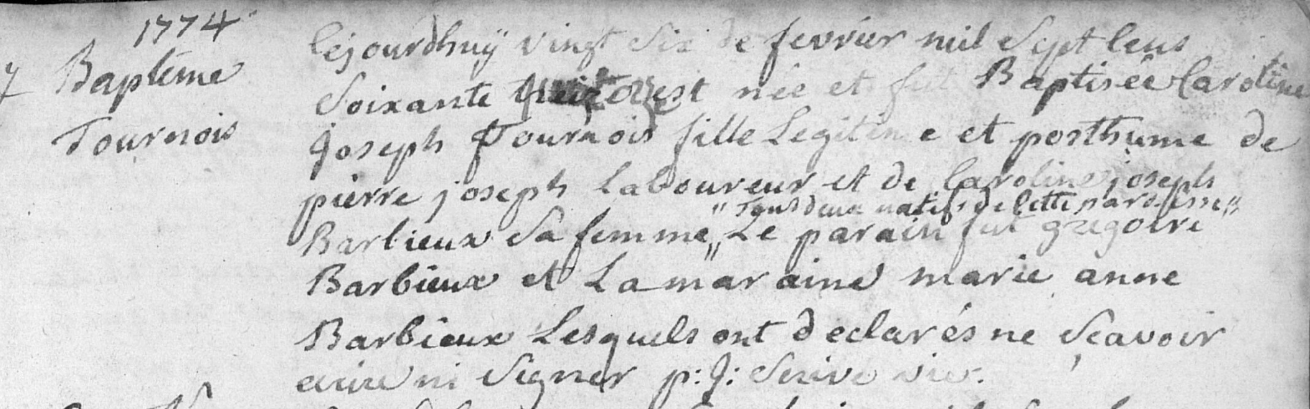 1774
7 Baptême
Tournois
Cejourdhuÿ vingt six de fevriér mil sept cens
soixante est née et fut Baptisée Caroline
joseph Tournois fille Legitime et posthume de
piérre joseph Laboureur et de Caroline joseph
"tous deux natifs de cette paroisse"
Barbieux sa femme " Le parain fut gregoire
Barbieux et La maraine marie anne
Barbieux Lesquels ont declarés ne scavoir
ecrire ni signer p: J: